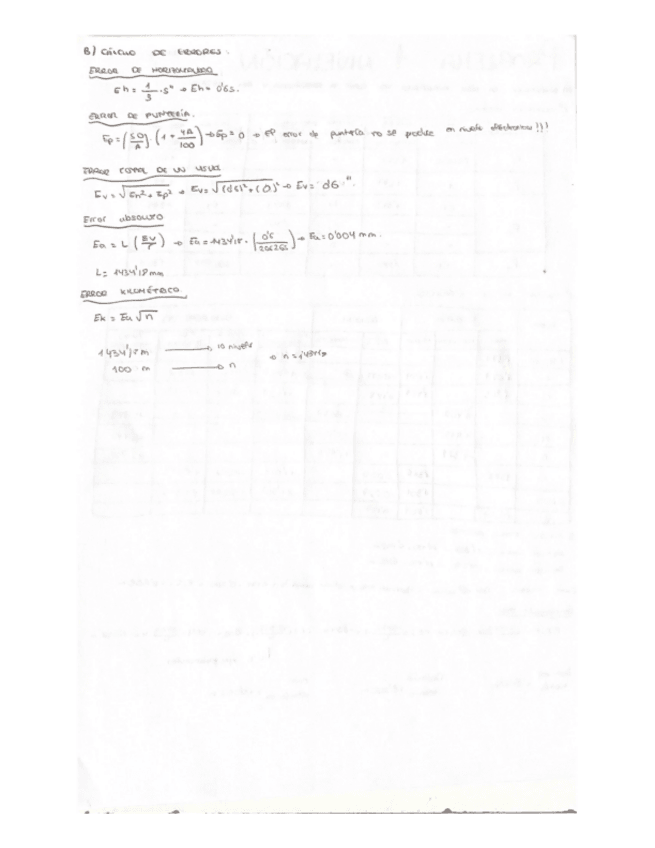 B) CÁLCULO DE ERRORES.
ERROR DE HORIZONTALIDAD
Eh = 1/3 · s" → Eh = 0'6s.
ERROR DE PUNTERÍA.
Ep = (50/A) · (1 + 4A/100) → Ep = 0 → Ep error de puntería no se produce en nivel electrónico!!!
ERROR TOTAL DE UN VISUAL
Ev = √(Eh² + Ep²) → Ev = √((0'6)² + (0)²) → Ev = 0'6".
Error absoluto
Ea = L (Ev/r) → Ea = 1434'18 · (0'6/206265) → Ea = 0'004 mm.
L = 1434'18 mm
ERROR KILOMÉTRICO
Ek = Ea √n
1434'18 m → 10
100 m → n → n =